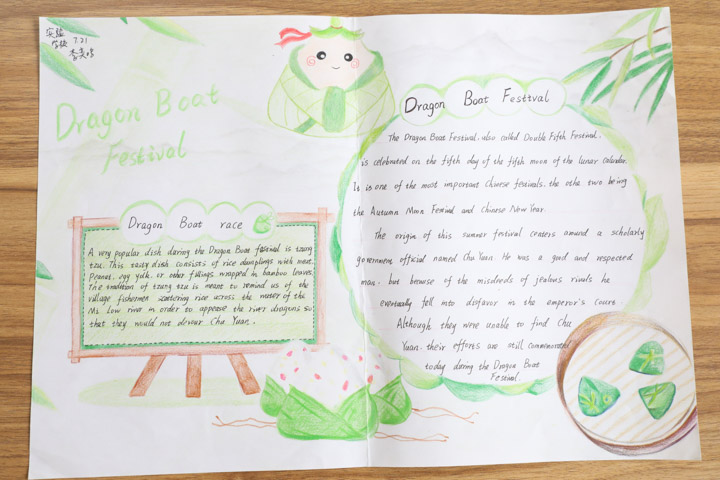 实验
学校 7.21
Dragon Boat
Festival
Dragon Boat race
A very popular dish during the Dragon Boat festival is tzung
tzu. This tasty dish consists of rice dumplings with meat,
Peanut, egg yolk, or other fillings wrapped in bamboo leaves.
The tradition of tzung tzu is meant to remind us of the
village fishermen scattering rice across the water of the
Mi Low river in order to appease the river dragons so
that they would not devour Chu Yuan.
Dragon Boat Festival
The Dragon Boat Festival, also called Double Fifth Festival,
is celebrated on the fifth day of the fifth moon of the lunar calendar.
It is one of the most important Chinese festivals, the othe two being
the Autumn Moon Festival and Chinese New Year.
The origin of this summer festival centers around a scholarly
government official named Chu Yuan. He was a good and respected
man, but because of the misdreds of jealous rivals he
eventually fell into disfavor in the emperor's court.
Although they were unable to find Chu
Yuan, their efforts are still commemorated
today during the Dragon Boat
Festival.